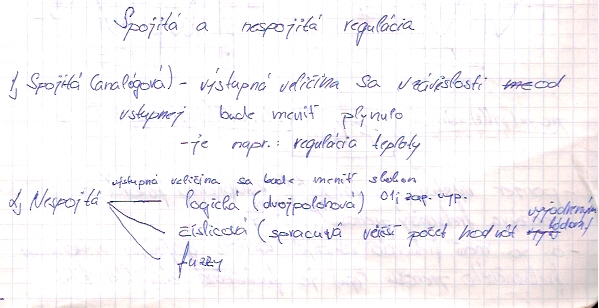 Spojitá a nespojitá regulácia
1, Spojitá (analógová) - výstupná veličina sa v závislosti od
vstupnej bude meniť plynulo
- je napr.: regulácia teploty
výstupná veličina sa bude meniť skokom
2, Nespojitá
logická (dvojpolohová) 01; zap. vyp.
číslicová (spracuvá větší počet hodnôt vyjadreným
kódom)
fuzzy